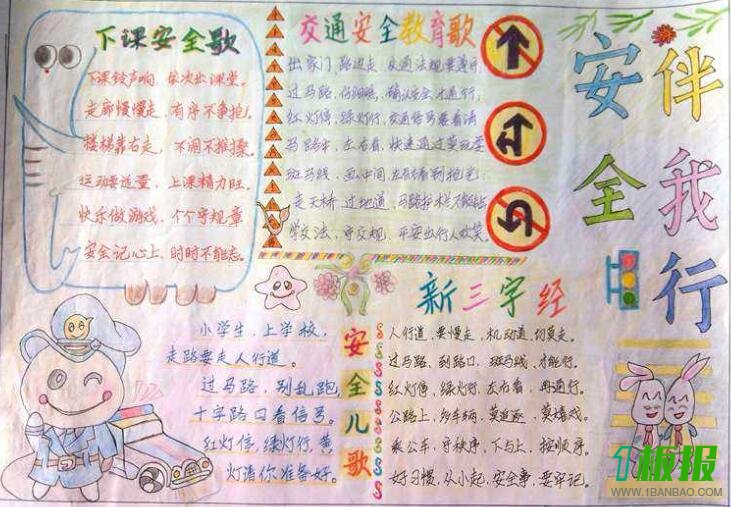 下课安全歌
下课铃声响，依次出课堂。
走廊慢慢走，有序不争抢。
楼梯靠右走，不闹不推搡。
运动要适量，上课精力旺。
快乐做游戏，个个守规章
安全记心上，时时不能忘。
交通安全教育歌
出家门，路边走，交通法规要遵守
过马路，仔细瞧，确认安全才通行，
红灯停，绿灯行，交通信号要看清
马路中，左右看，快速通过莫玩耍
斑马线，画中间，
走天桥，过地道，马路护栏不能钻
学交法，守交规，平安出行人欢笑。
安全伴我行
安全儿歌
小学生，上学校，
走路要走人行道。
过马路，别乱跑，
十字路口看信号。
红灯停，绿灯行，黄
灯请你准备好。
新三字经
人行道，要慢走，机动道，切莫走。
过马路，到路口，斑马线，才能行。
红灯停，绿灯行，左右看，再通行。
公路上，多车辆，莫追逐，莫嬉戏。
乘公车，守秩序，下与上，按顺序。
好习惯，从小起，安全事，要牢记。
1板报
WWW.1BANBAO.COM